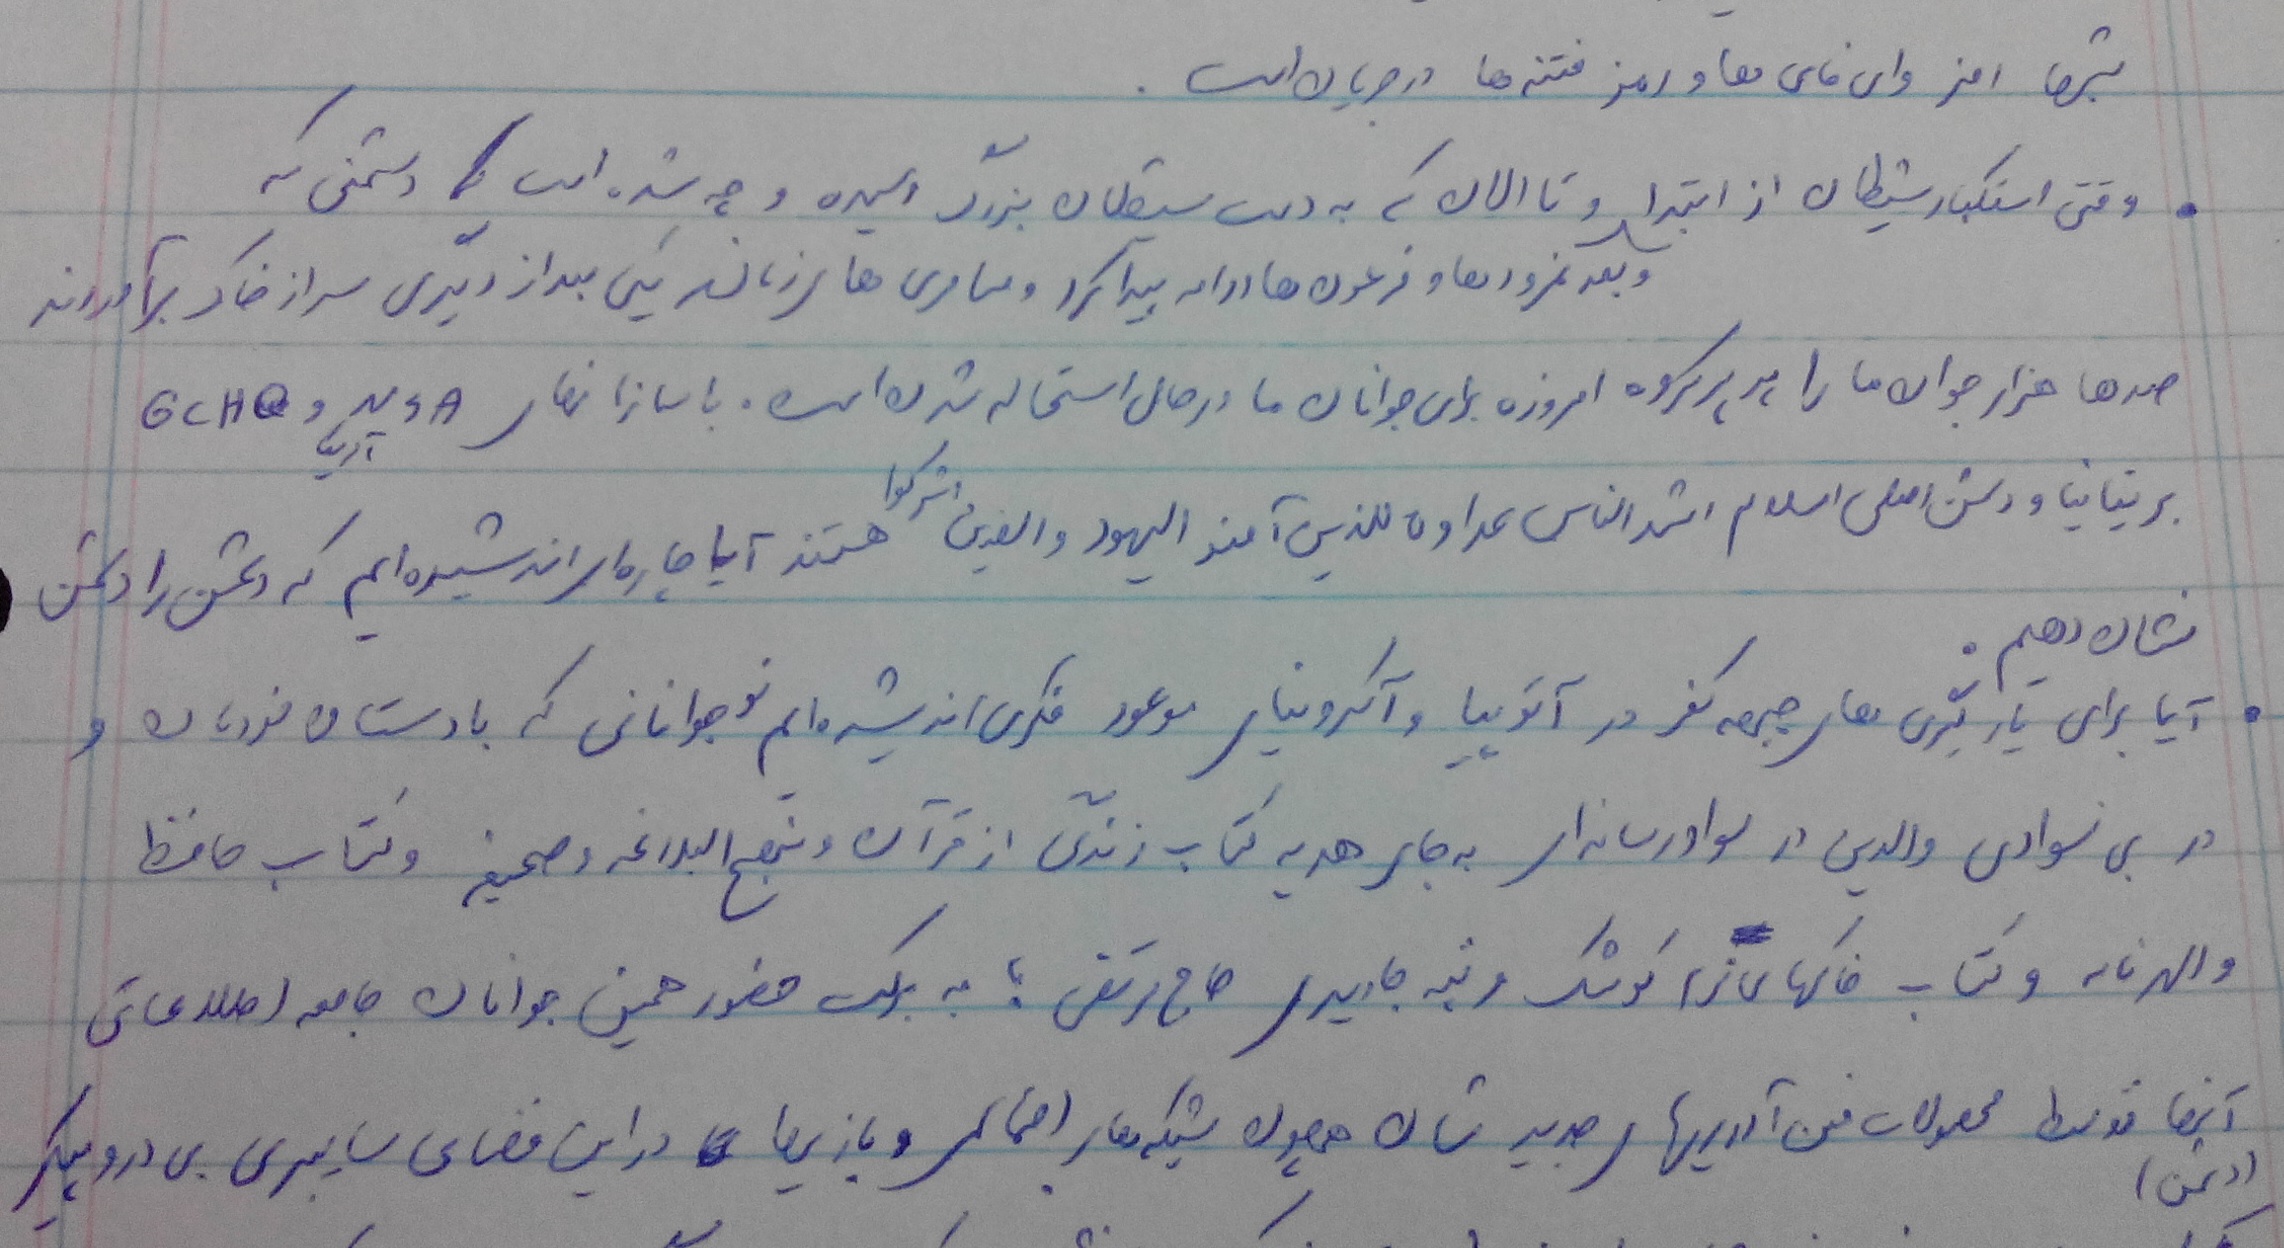 شهرها امن وای فای ها و رمز فتنه ها در جریان است .
• وقتی استکبار شیطان از ابتدا و تا الان که به دست شیطان بزرگ رسیده و چه شده است دشمنی که
و بعد نمرودها و فرعون ها ادامه پیدا کرد و سامری های زمانه یکی بعد از دیگری سر از خاک برآوردند
صدها هزار جوان ما را پرپر کرده امروزه برای جوانان ما در حال استحاله شدن است . با سازمانهای NSA آمریکا و GCHQ
بریتانیا و دشمن اصلی اسلام اشد الناس عداوة للذین آمنو الیهود والذین اشرکوا هستند آیا چاره ای اندیشیده ایم که دشمن را دشمن
نشان دهیم .
• آیا برای یارگیری های جبهه کفر در آتوپیا و آکرونیای موعود فکری اندیشیده ایم نوجوانانی که با دستان خودمان و
در بی سوادی والدین در سواد رسانه ای به جای هدیه کتاب زندگی از قرآن و نهج البلاغه و صحیفه و کتاب حافظ
و الهی نامه و کتاب خاکهای نرم کوشک و نیمه جاویدی حاج مرتضی ؛ به برکت حضور همین جوانان جامعه اطلاعاتی
آنها (دشمن) توسط محصولات فن آوریهای جدید شان همچون شبکه های اجتماعی و بازیها در این فضای سایبری بی در و پیکر